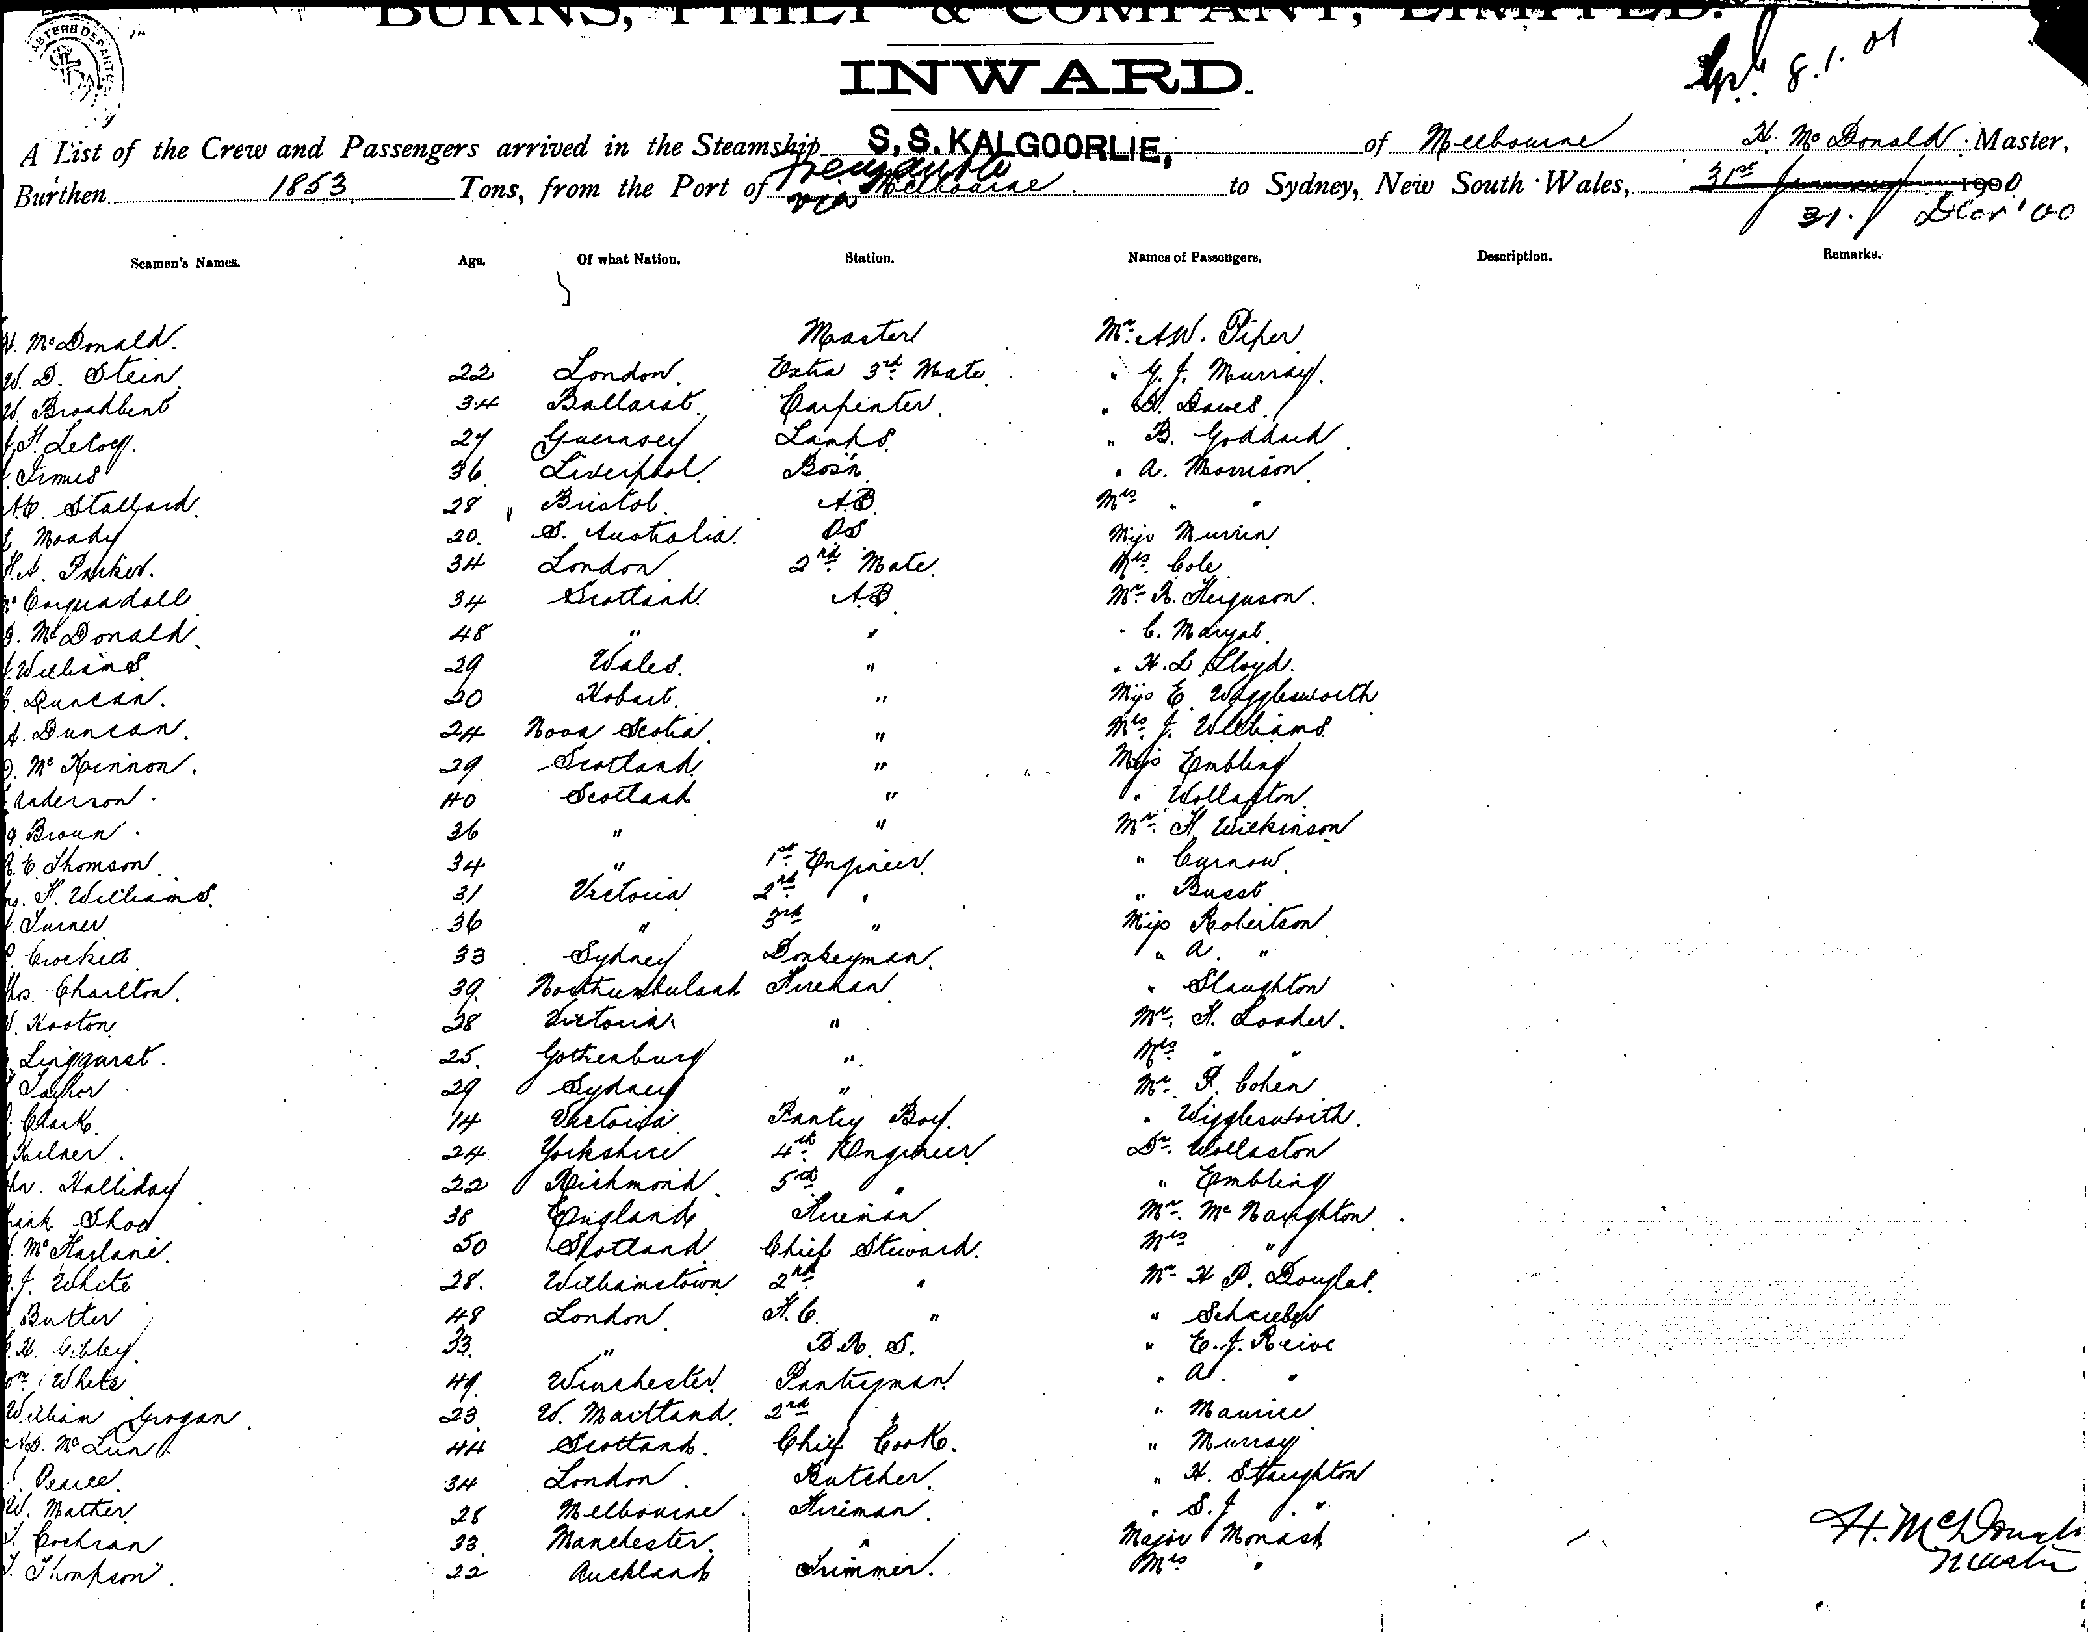 BURNS, PHILP & COMPANY, LIMITED.
INWARD.
8.1.01
A List of the Crew and Passengers arrived in the Steamship S.S. KALGOORLIE, of Melbourne H. McDonald Master,
Burthen 1853 Tons, from the Port of Fremantle via Melbourne to Sydney, New South Wales, 31st January 1900
31 / Decr '00
Seamen's Names. Age. Of what Nation. Station. Names of Passengers. Description. Remarks.
H. McDonald. Master Mr. A.W. Piper
W. D. Stein. 22 London. Extra 3rd Mate Mr. G. J. Murray.
W. Broadbent 34 Ballarat. Carpenter. " Dawes.
27 Guernsey Lamps " B. Goddard
36 Liverpool. Bos'n " A. Morrison
Stallard. 28 Bristol. AB Mrs " "
Moody 20. S. Australia. OS Miss
H.A. Parker. 34 London 2nd Mate. Mrs. Cole
34 Scotland. AB Mr. R. Ferguson.
D. McDonald. 48 " " " C.
J. Williams. 29 Wales. " " H. L. Lloyd.
Duncan. 20 Hobart. " Miss E. Wigglesworth
A. Duncan. 24 Nova Scotia. " Mrs. J. Williams
D. McKinnon. 29 Scotland " Miss Embling
Anderson. 40 Scotland " " Wollaston
Brown. 36 " " Mr. H. Wilkinson
R. E. Thomson 34 " 1st Engineer. " Curnow.
H. Williams. 31 Victoria 2nd " " Busst
Turner 36 " 3rd " Miss Robertson
Crockett 33 Sydney Donkeyman. " A. "
Thos. Charlton. 39. Northumberland Fireman " Staughton
28 Victoria " Mr. H. Loader.
25. Gothenburg " Mrs " "
Taylor 29 Sydney " Mr. P. Cohen
Clark. 14 Victoria Pantry Boy. " Wigglesworth.
24 Yorkshire 4th Engineer Dr. Wollaston
Halliday 22 Richmond 5th " " Embling
38 England Fireman Mr. McNaughton
McFarlane. 50 Scotland Chief Steward. Mrs "
J. White 28. Williamstown 2nd " Mr. H. P. Douglas.
Butler 48 London. F.C. "
33. " B.R.S. " E. J. Reive
White 49. Winchester Pantryman " A. "
William Grogan. 23. W. Maitland. 2nd " " Maurice
44 Scotland. Chief Cook. " Murray
Pearce. 34 London. Butcher. " H. Staughton
W. Mather 28 Melbourne. Fireman. " S. J. "
Cochran 33. Manchester. " Major Monash
T. Thompson. 22 Auckland Trimmer. Mrs "
H. McDonald
Master